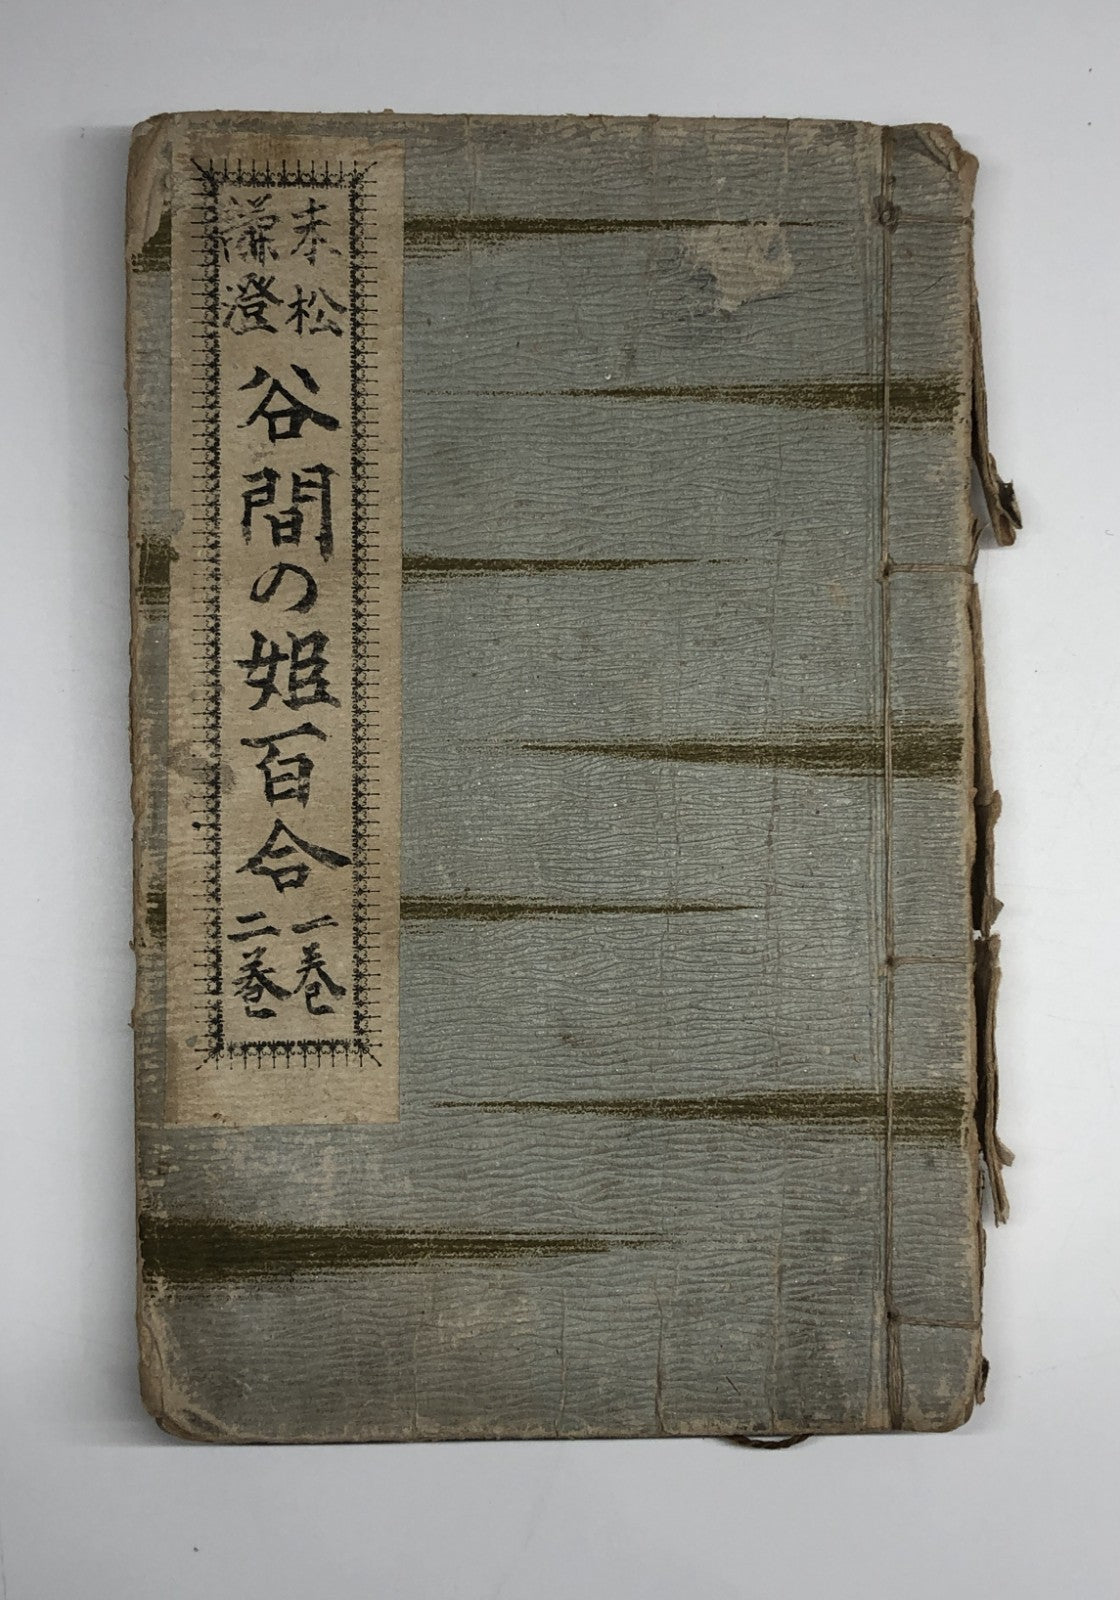 末松
謙澄
谷間の姫百合
一巻
二巻